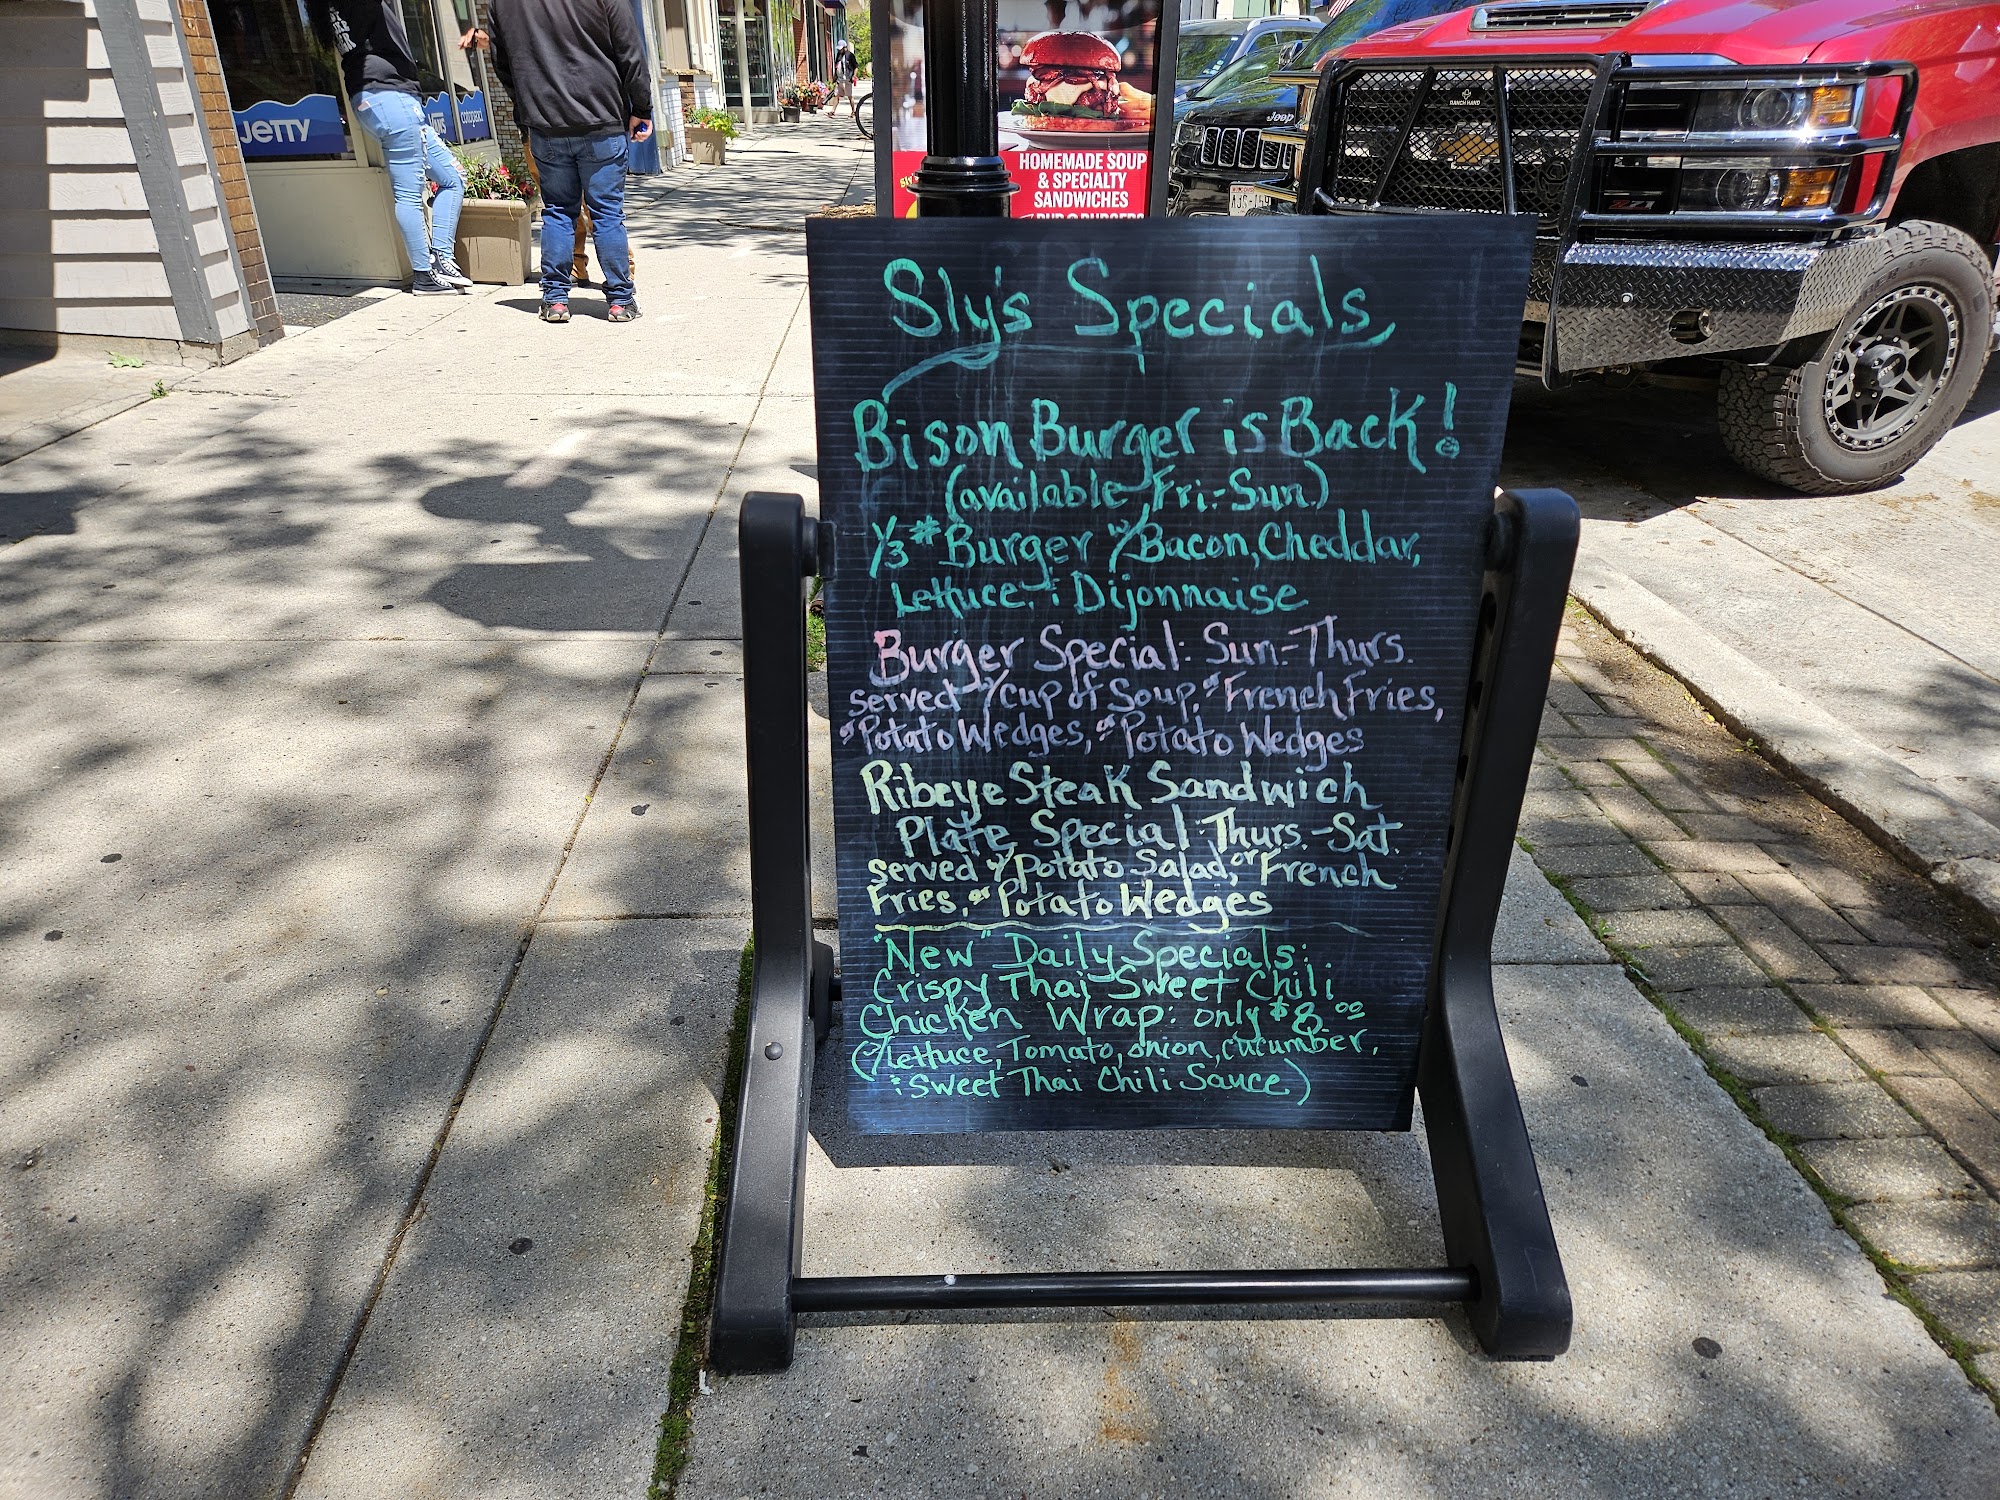 JETTY
VANS
HOMEMADE SOUP
& SPECIALTY
SANDWICHES
Jeep
RANCH HAND
Z71
Sly's Specials
Bison Burger is Back!
(available Fri.-Sun.)
1/3 # Burger w/ Bacon, Cheddar,
Lettuce, & Dijonnaise
Burger Special: Sun.-Thurs.
served w/ cup of Soup, or French Fries,
or Potato Wedges, or Potato Wedges
Ribeye Steak Sandwich
Plate Special: Thurs.-Sat.
served w/ Potato Salad, or French
Fries, or Potato Wedges
"New" Daily Specials:
Crispy Thai Sweet Chili
Chicken Wrap: only $8.00
(w/ Lettuce, Tomato, onion, cucumber,
& Sweet Thai Chili Sauce)